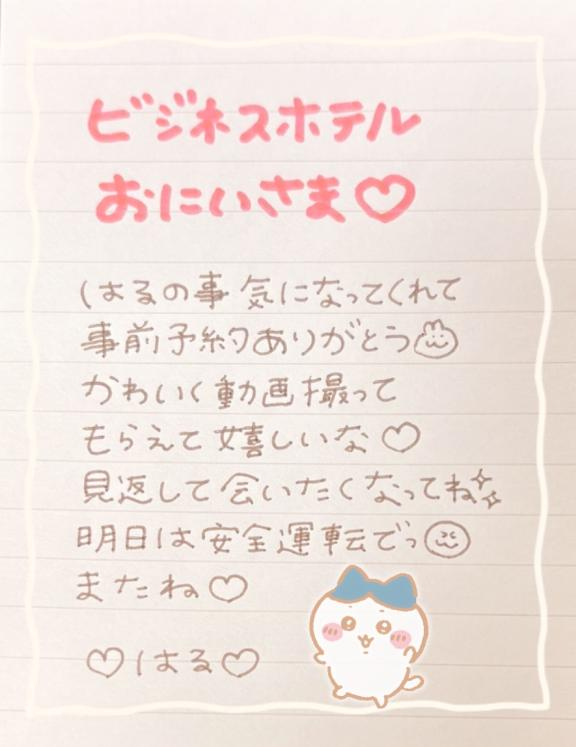 ビジネスホテル
おにいさま♡
はるの事 気になってくれて
事前予約ありがとう
かわいく動画撮って
もらえて嬉しいな♡
見返して会いたくなってね
明日は安全運転でっ
またね♡
♡はる♡